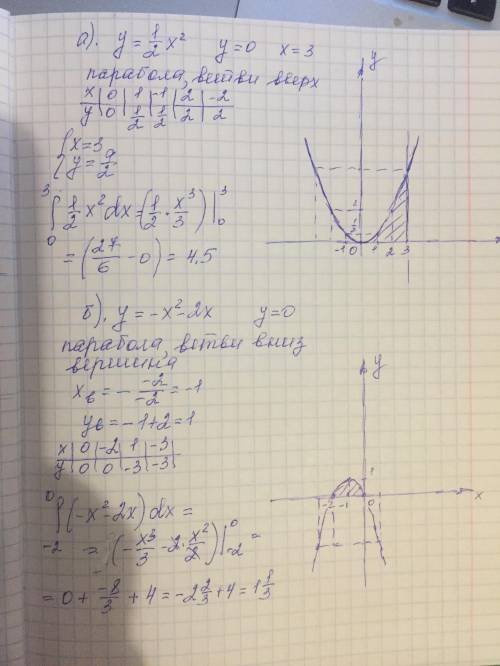 а). y = 1/2 x² y=0 x=3
парабола, ветви вверх
x | 0 | 1 | -1 | 2 | -2
y | 0 | 1/2 | 1/2 | 2 | 2
{ x=3
y = 9/2
3 ∫ 0 1/2 x² dx = (1/2 · x³/3) | 3 0
= (27/6 - 0) = 4,5
y
-1 0 1 2 3
б). y = -x² - 2x y=0
парабола, ветви вниз
вершина
xв = - -2/-2 = -1
yв = -1+2 = 1
x | 0 | -2 | 1 | -3
y | 0 | 0 | -3 | -3
0 ∫ -2 (-x² - 2x) dx =
= (-x³/3 - 2 · x²/2) | 0 -2 =
= 0 + -8/3 + 4 = -2 2/3 + 4 = 1 1/3
y
1
-2 -1 0 x